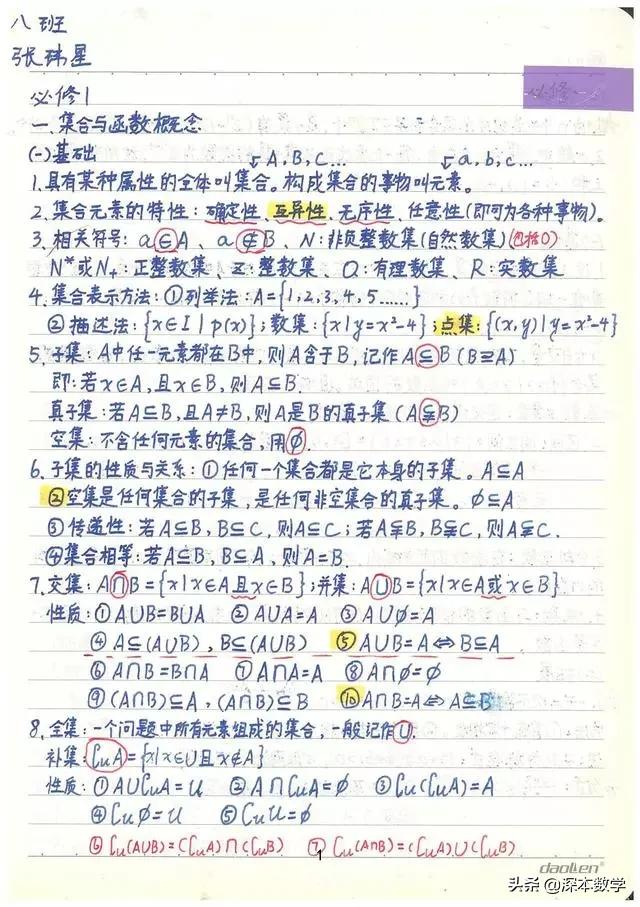 八班
张玮星
必修一
必修1
一、集合与函数概念
(一)基础 A,B,C... a,b,c...
1.具有某种属性的全体叫集合。构成集合的事物叫元素。
2.集合元素的特性：确定性、互异性、无序性、任意性(即可为各种事物)。
3.相关符号：a∈A、a∉B、N：非负整数集(自然数集)(包括0)
N*或N₊：正整数集、Z：整数集、Q：有理数集、R：实数集
4.集合表示方法：①列举法：A={1,2,3,4,5......}
②描述法：{x∈I|p(x)}；数集：{x|y=x²-4}；点集：{(x,y)|y=x²-4}
5.子集：A中任一元素都在B中，则A含于B，记作A⊆B(B⊇A)
即：若x∈A，且x∈B，则A⊆B.
真子集：若A⊆B，且A≠B，则A是B的真子集(A⫋B)
空集：不含任何元素的集合，用∅.
6.子集的性质与关系：①任何一个集合都是它本身的子集。A⊆A
②空集是任何集合的子集，是任何非空集合的真子集。∅⊆A
③传递性：若A⊆B，B⊆C，则A⊆C；若A⫋B，B⫋C，则A⫋C.
④集合相等：若A⊆B，B⊆A，则A=B.
7.交集：A∩B={x|x∈A且x∈B}；并集：A∪B={x|x∈A或x∈B}
性质：①A∪B=B∪A ②A∪A=A ③A∪∅=A
④A⊆(A∪B)，B⊆(A∪B) ⑤A∪B=A⇔B⊆A
⑥A∩B=B∩A ⑦A∩A=A ⑧A∩∅=∅
⑨(A∩B)⊆A，(A∩B)⊆B ⑩A∩B=A⇔A⊆B
8.全集：一个问题中所有元素组成的集合，一般记作U.
补集：∁uA={x|x∈U且x∉A}
性质：①A∪∁uA=U ②A∩∁uA=∅ ③∁u(∁uA)=A
④∁u∅=U ⑤∁uU=∅
⑥∁u(A∪B)=(∁uA)∩(∁uB) ⑦∁u(A∩B)=(∁uA)∪(∁uB)
1
daolen®
头条@深本数学